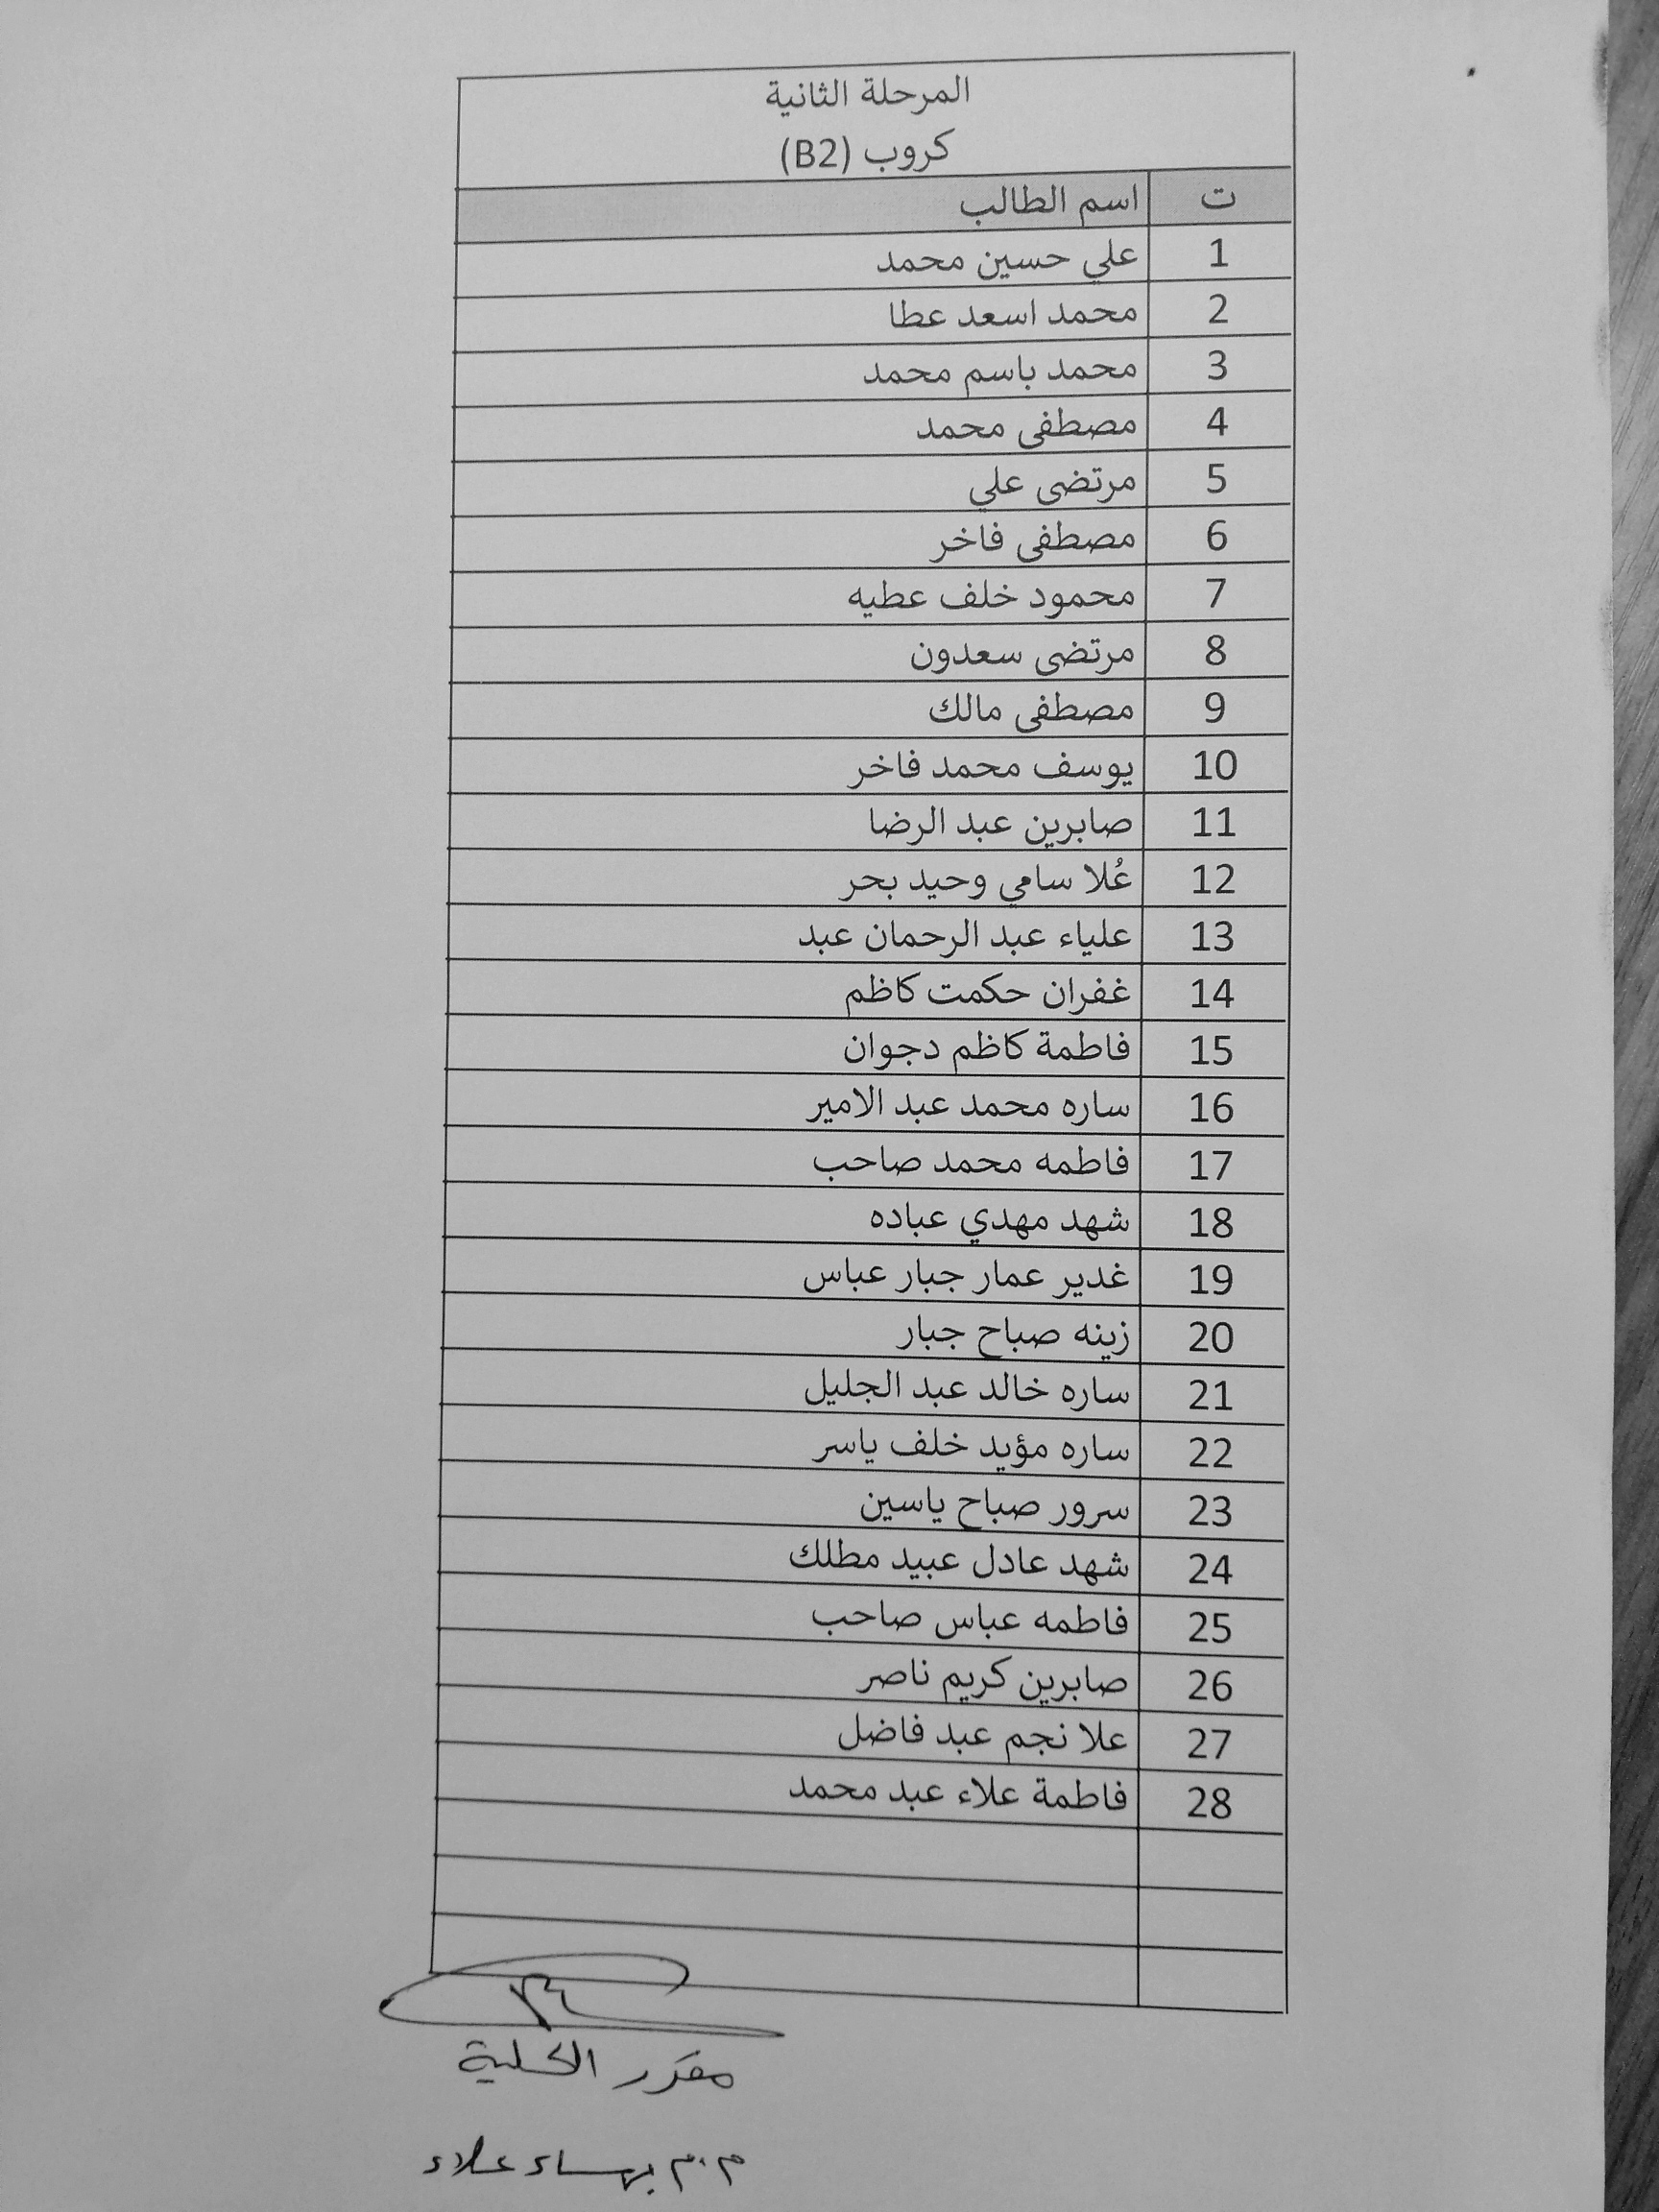 المرحلة الثانية
كروب (B2)
ت اسم الطالب
1 علي حسين محمد
2 محمد اسعد عطا
3 محمد باسم محمد
4 مصطفى محمد
5 مرتضى علي
6 مصطفى فاخر
7 محمود خلف عطيه
8 مرتضى سعدون
9 مصطفى مالك
10 يوسف محمد فاخر
11 صابرين عبد الرضا
12 عُلا سامي وحيد بحر
13 علياء عبد الرحمان عبد
14 غفران حكمت كاظم
15 فاطمة كاظم دجوان
16 ساره محمد عبد الامير
17 فاطمه محمد صاحب
18 شهد مهدي عباده
19 غدير عمار جبار عباس
20 زينه صباح جبار
21 ساره خالد عبد الجليل
22 ساره مؤيد خلف ياسر
23 سرور صباح ياسين
24 شهد عادل عبيد مطلك
25 فاطمه عباس صاحب
26 صابرين كريم ناصر
27 علا نجم عبد فاضل
28 فاطمة علاء عبد محمد
مقرر الكلية
م.م بهاء علاء